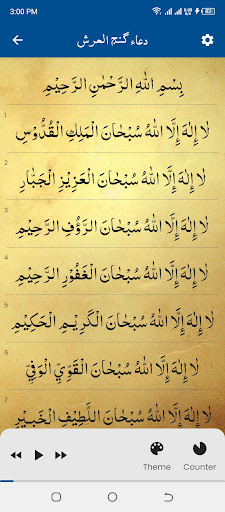 3:00 PM
دعاء گنج العرش
بِسْمِ اللهِ الرَّحْمٰنِ الرَّحِيْمِ
1
لَا إِلٰهَ إِلَّا اللهُ سُبْحَانَ الْمَلِكِ الْقُدُّوْسِ
2
لَا إِلٰهَ إِلَّا اللهُ سُبْحَانَ الْعَزِيْزِ الْجَبَّارِ
3
لَا إِلٰهَ إِلَّا اللهُ سُبْحَانَ الرَّؤُفِ الرَّحِيْمِ
4
لَا إِلٰهَ إِلَّا اللهُ سُبْحَانَ الْغَفُوْرِ الرَّحِيْمِ
5
لَا إِلٰهَ إِلَّا اللهُ سُبْحَانَ الْكَرِيْمِ الْحَكِيْمِ
6
لَا إِلٰهَ إِلَّا اللهُ سُبْحَانَ الْقَوِيِّ الْوَفِيِّ
7
لَا إِلٰهَ إِلَّا اللهُ سُبْحَانَ اللَّطِيْفِ الْخَبِيْرِ
Theme Counter